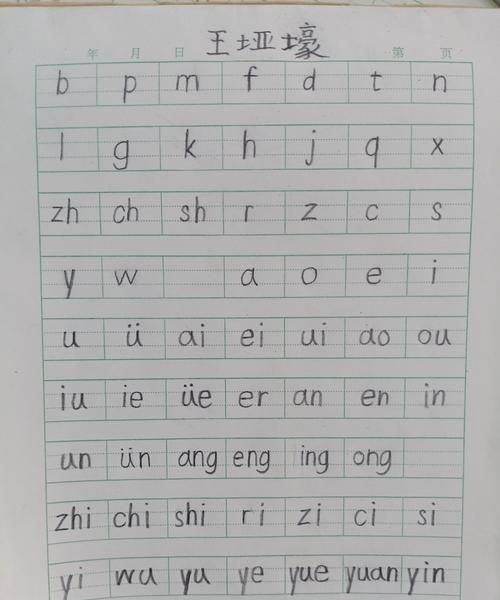 王垭壕
年 月 日 第 页
b p m f d t n
l g k h j q x
zh ch sh r z c s
y w a o e i
u ü ai ei ui ao ou
iu ie üe er an en in
un ün ang eng ing ong
zhi chi shi ri zi ci si
yi wu yu ye yue yuan yin